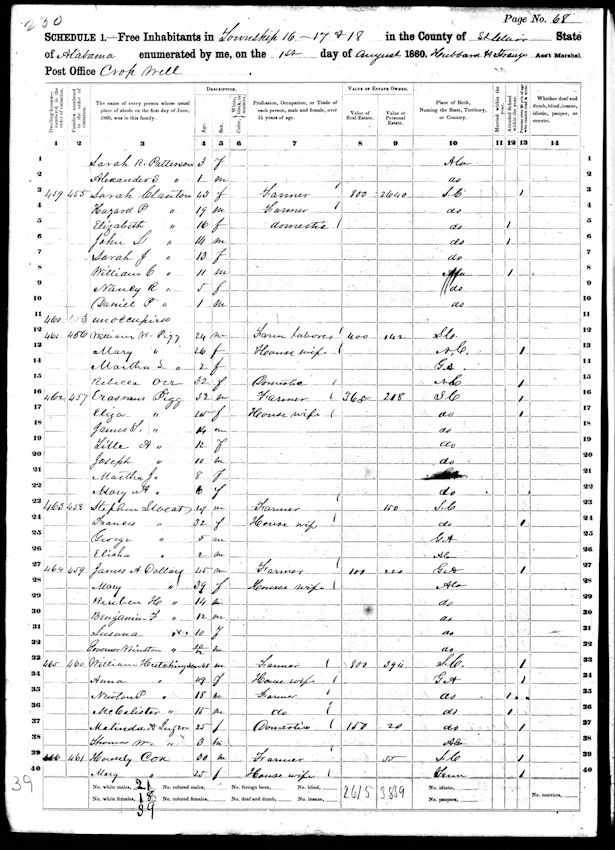 230
Page No. 68
SCHEDULE 1.—Free Inhabitants in Township 16-17 & 18 in the County of St Clair State
of Alabama enumerated by me, on the 1st day of August 1860. Hubbard H Strange Ass't Marshal.
Post Office Crop Well
DESCRIPTION.
VALUE OF ESTATE OWNED.
Dwelling-houses—numbered in the order of visitation.
Families numbered in the order of visitation.
The name of every person whose usual place of abode on the first day of June, 1860, was in this family.
Age.
Sex.
Color, White, black, or mulatto.
Profession, Occupation, or Trade of each person, male and female, over 15 years of age.
Value of Real Estate.
Value of Personal Estate.
Place of Birth, Naming the State, Territory, or Country.
Married within the year.
Attended School within the year.
Persons over 20 y'rs of age who cannot read & write.
Whether deaf and dumb, blind, insane, idiotic, pauper, or convict.
1 2 3 4 5 6 7 8 9 10 11 12 13 14
1 Sarah R. Patterson 3 f Ala 1
2 Alexander E " 1 m do 2
3 459 455 Sarah Clanton 43 f Farmer 800 2640 S.C 1 3
4 Hazard P " 19 m Farmer do 4
5 Elizabeth " 16 f domestic do 1 5
6 John S " 14 m do 1 6
7 Sarah J " 13 f do 7
8 William C " 11 m Ala 1 8
9 Nancy R " 5 f do 9
10 Daniel P " 1 m do 10
11 460 unoccupied 11
12 461 456 William W. Pigg 24 m Farm laborer 400 142 S.C. 12
13 Mary " 26 f House wife N.C. 1 13
14 Martha " 2 f GA 14
15 Rebecca Orr 32 f Domestic N.C 1 15
16 462 457 Erasmus Pigg 32 m Farmer 365 218 S.C 1 16
17 Eliza " f House wife do 1 17
18 James S. " 14 m do 18
19 A " 12 f do 19
20 Joseph " 10 m do 20
21 Martha J " 8 f 21
22 Mary A " 6 f do 22
23 463 458 Stephen m Farmer 150 S.C 23
24 Francis " 32 f House wife do 1 24
25 George " 5 m GA 25
26 Elisha " 2 m Ala 26
27 464 459 James A Dollar 45 m Farmer GA 1 27
28 Mary " 39 f House wife Ala 1 28
29 Reuben H " 14 m do 29
30 Benjamin F " 12 m do 30
31 Susana " 10 f do 31
32 Winston " m do 32
33 465 460 William m Farmer 800 394 S.C. 1 33
34 Anna " 49 f House wife GA 1 34
35 Newton P " 18 m Farmer do 1 35
36 McCalister " 15 m do do 1 36
37 Malinda A 25 f Domestic 150 20 do 1 37
38 Thomas W " 3 m Ala 38
39 466 461 Cox 30 m Farmer 55 S.C 1 39
40 Mary " 25 f House wife Tenn 1 40
39
No. white males, 21 No. colored males, No. foreign born, No. blind, 2615 3839 No. idiotic, No. convicts,
No. white females, 18 No. colored females, No. deaf and dumb, No. insane, No. paupers,
39